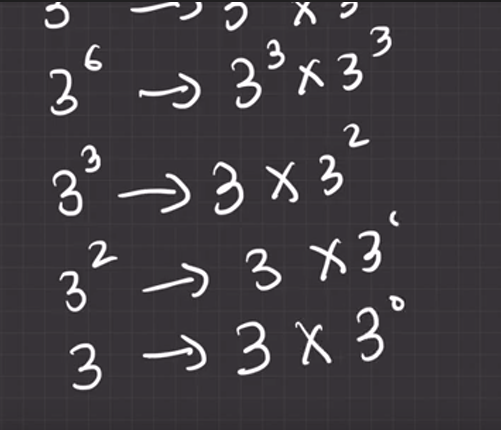 3⁶ → 3³ × 3³
3³ → 3 × 3²
3² → 3 × 3¹
3 → 3 × 3⁰